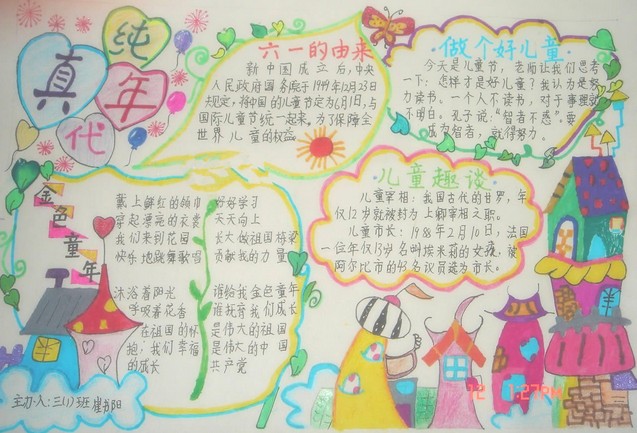 纯真年代
六一的由来
新中国成立后,中央
人民政府国务院于1949年12月23日
规定,将中国的儿童节定为6月1日,与
国际儿童节统一起来。为了保障全
世界儿童的权益
做个好儿童
今天是儿童节,老师让我们思考
一下:怎样才是好儿童?我认为是努
力读书。一个人不读书,对于事理就
不明白。孔子说:“智者不惑”。要
成为智者,就得努力。
金色童年
戴上鲜红的领巾
穿起漂亮的衣裳
我们来到花园
快乐地跳舞歌唱
沐浴着阳光
呼吸着花香
在祖国的怀
抱,我们幸福
的成长
好好学习
天天向上
长大做祖国栋梁
贡献我的力量
谁给我金色童年
谁抚育我们成长
是伟大的祖国
是伟大的中国
共产党
儿童趣谈
儿童宰相:我国古代的甘罗,年
仅12岁就被封为上卿宰相之职。
儿童市长:1988年2月10日,法国
一位年仅13岁名叫埃米莉的女孩,被
阿尔比市的43名议员选为市长。
主办人:三(1)班
12 1:27PM